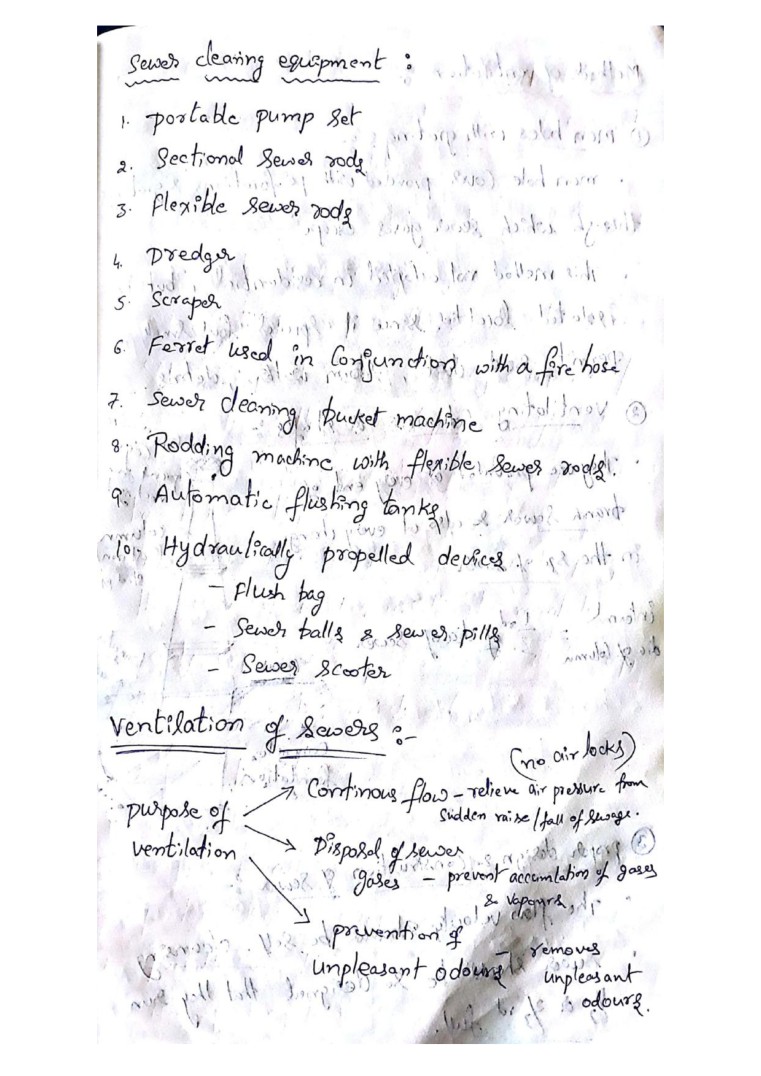 Sewer cleaning equipment :
1. portable pump set
2. Sectional sewer rods
3. flexible sewer rods
4. Dredger
5. Scraper
6. Ferret used in Conjunction with a fire hose
7. Sewer cleaning bucket machine
8. Rodding machine with flexible sewer rods.
9. Automatic flushing tanks
10. Hydraulically propelled devices
- flush bag
- Sewer balls & sewer pills
- Sewer scooter
Ventilation of Sewers :-
(no air locks)
purpose of ventilation
→ Continous flow - relieve air pressure from
sudden raise / fall of sewage.
→ Disposal of sewer
gases - prevent accumlation of gases
& vapours
→ prevention of
unpleasant odours - removes
unpleasant
odours.